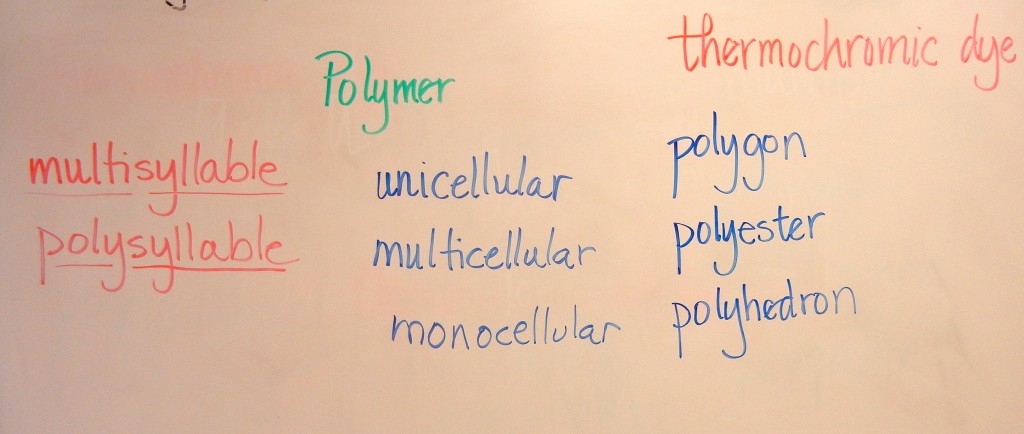 thermochromic dye
Polymer
multisyllable
polysyllable
unicellular
multicellular
monocellular
polygon
polyester
polyhedron